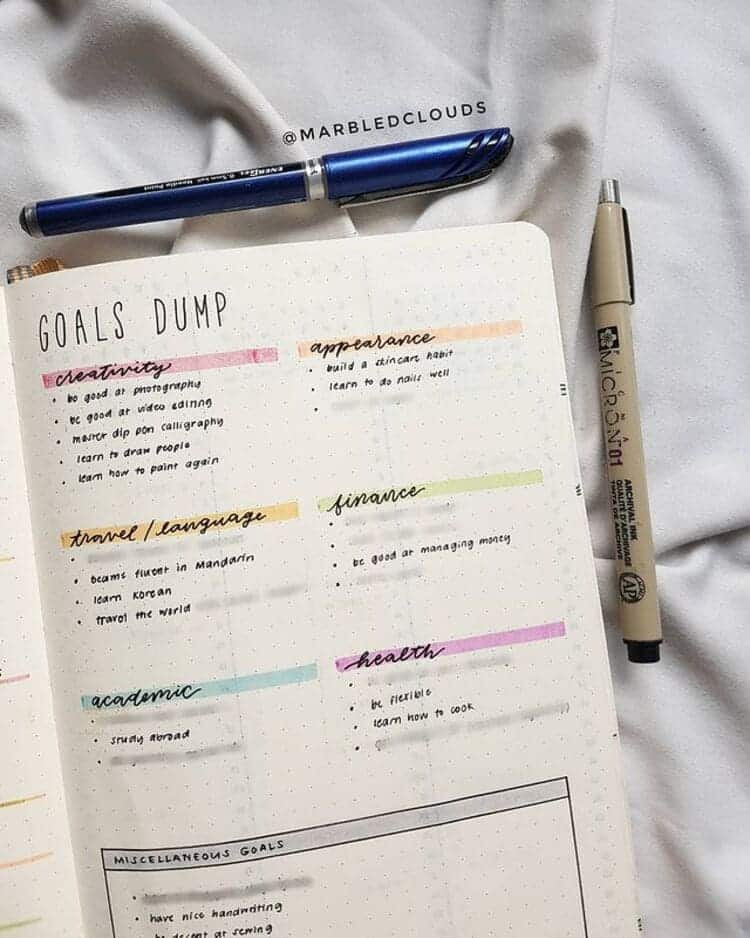 @MARBLEDCLOUDS
ENERGEL 0.5mm Needle Point
GOALS DUMP
creativity
• be good at photography
• be good at video editing
• master dip pen calligraphy
• learn to draw people
• learn how to paint again
appearance
• build a skincare habit
• learn to do nails well
•
travel / language
•
• beame fluent in Mandarin
• learn Korean
• travel the world
finance
•
•
• be good at managing money
•
academic
•
• study abroad
•
health
•
• be flexible
• learn how to cook
•
MISCELLANEOUS GOALS
•
• have nice handwriting
• be decent at sewing
SAKURA
PIGMA
MICRON 01
ARCHIVAL INK
QUALITÉ D'ARCHIVAGE
TINTA DE ARCHIVE
AP